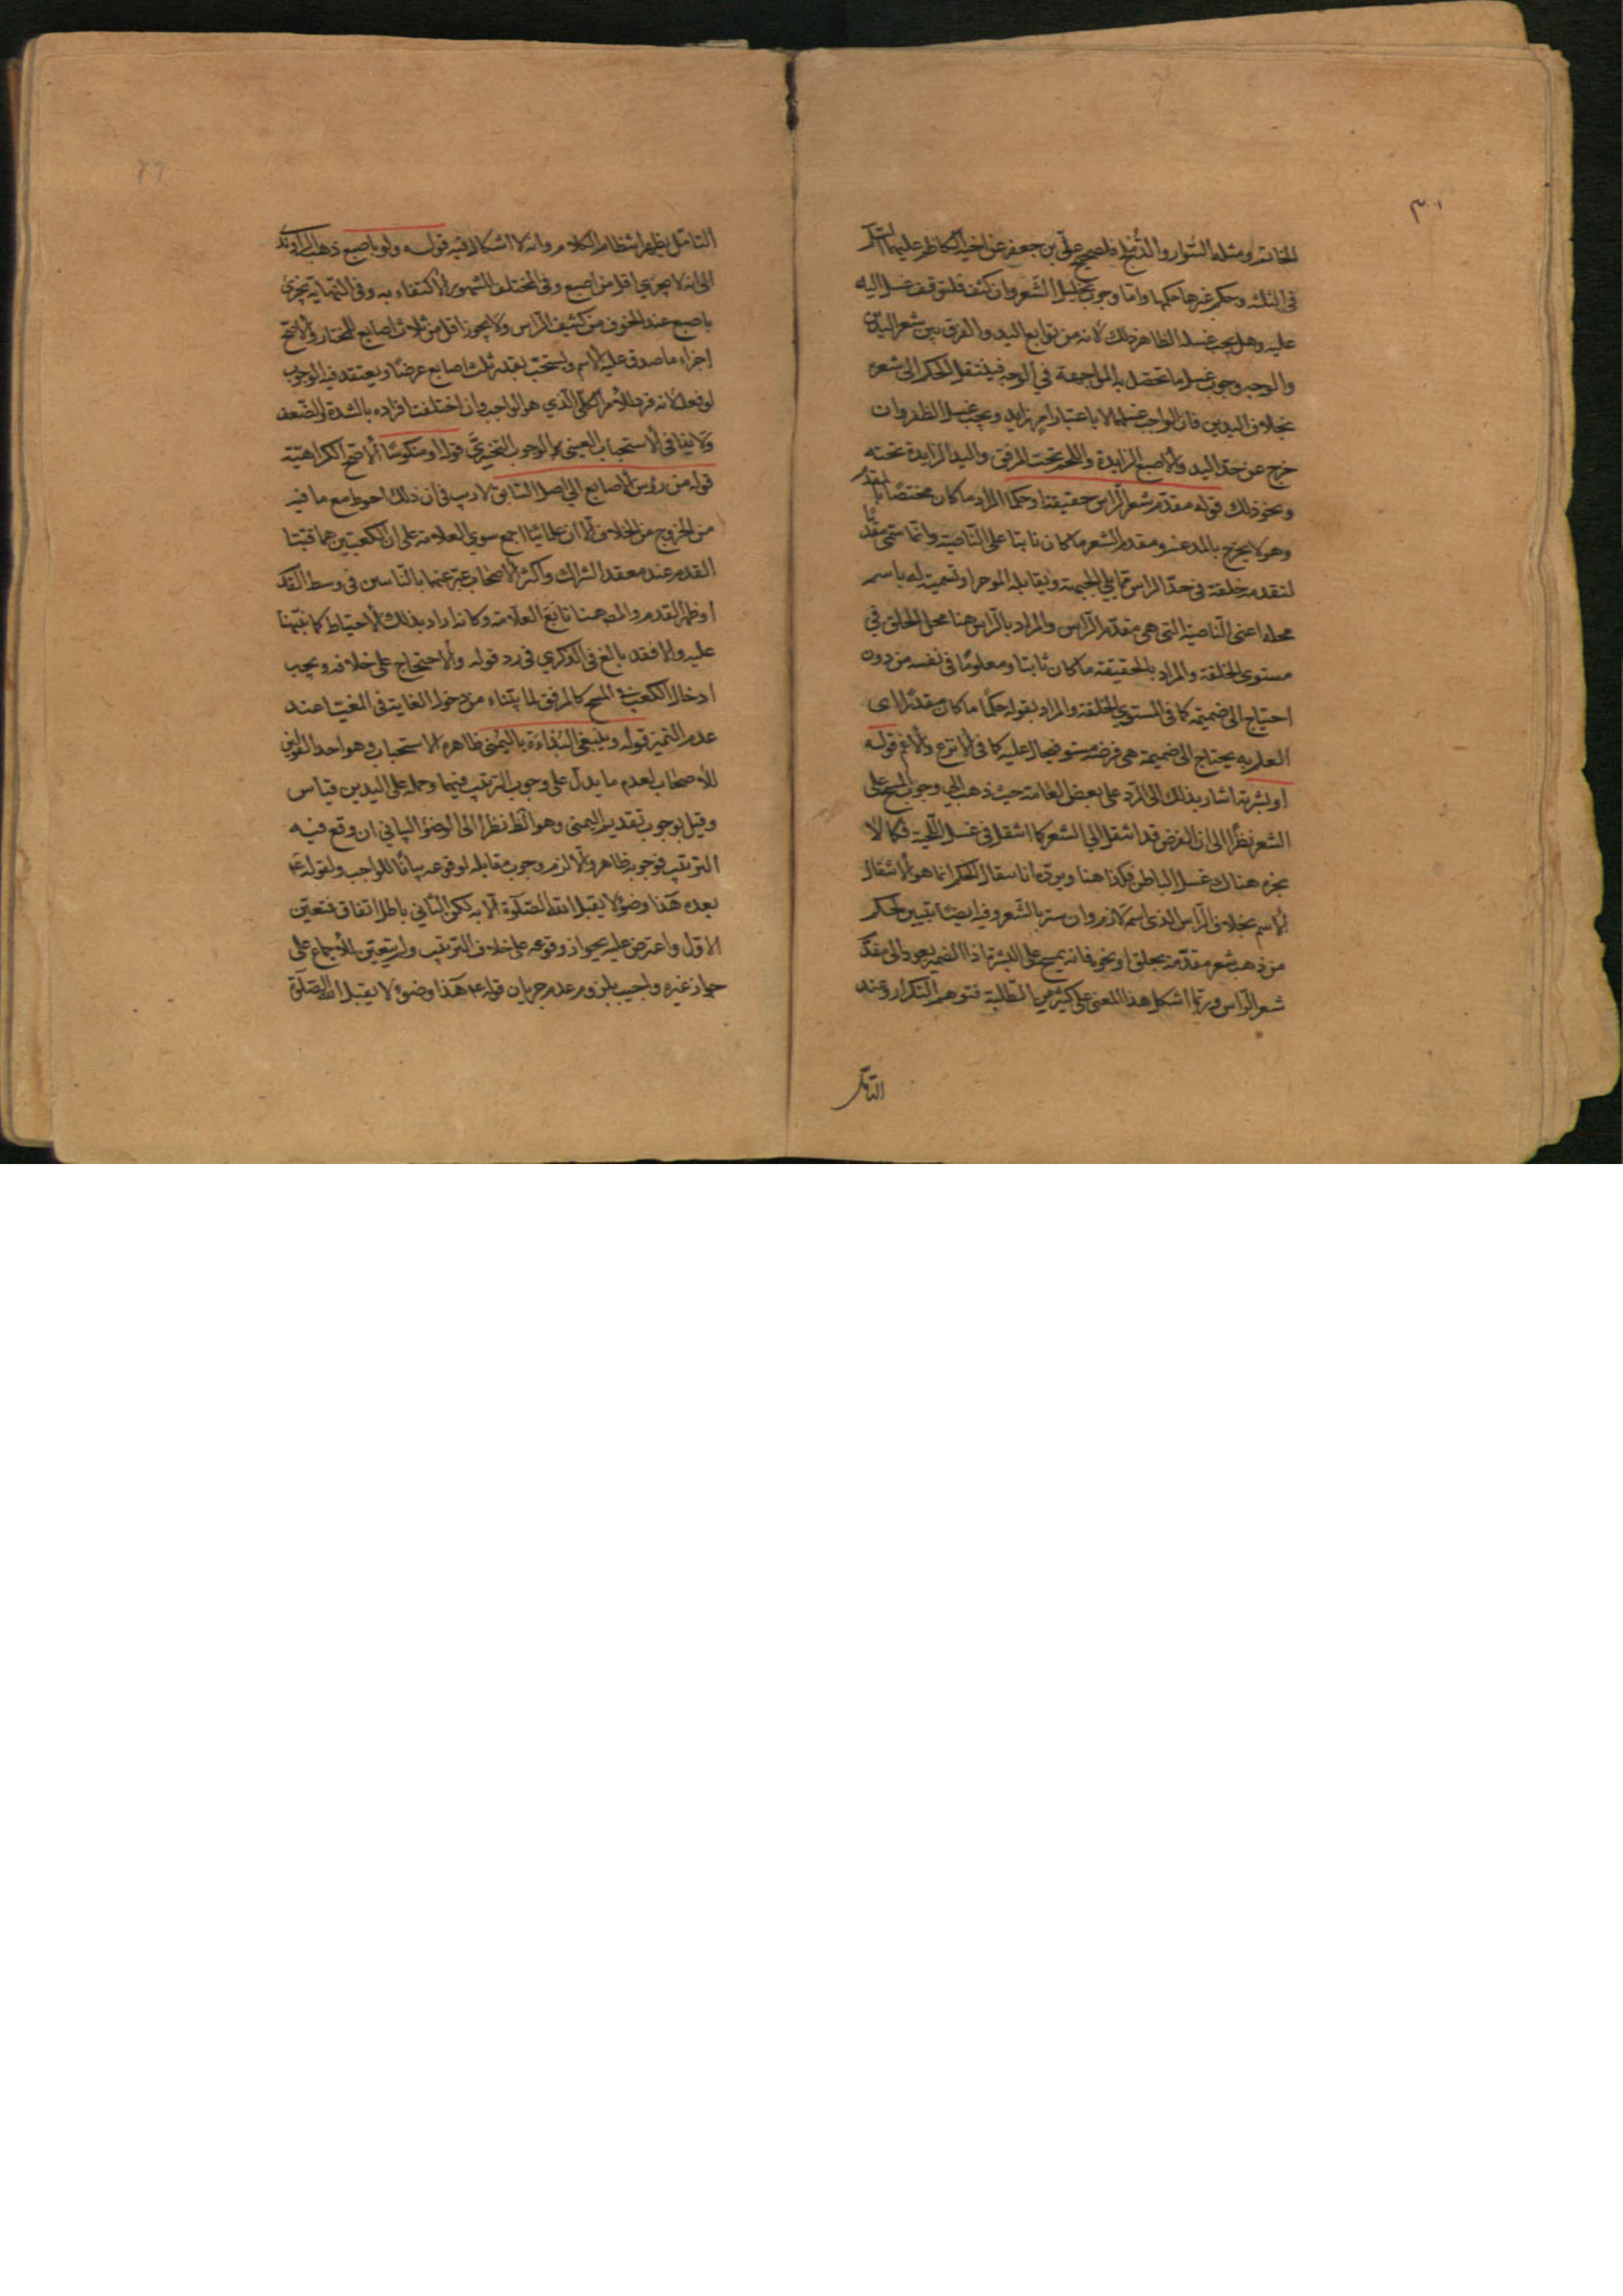 ٣٠١
الخاتم ومثله السوار والدملج لصحيح علي بن جعفر عن اخيه الكاظم عليهما السلام
في الثلثة وحكم غيرها حكمها واما وجوب تخليل الشعر وان كثف فلتوقف غسل اليد
عليه وهل يجب غسل الظاهر ذلك لانه من توابع اليد والفرق بين شعر اليدين
والوجه وجوب غسل ما تحصل به المواجهة في الوجه فينتقل الحكم الى شعره
بخلاف اليدين فان الواجب غسلهما لا باعتبار امر زايد ويجب غسل الظفر وان
خرج عن حد اليد والاصبع الزايدة واللحم تحت المرفق واليد الزايدة تحته
ونحو ذلك قوله مقدم شعر الراس حقيقة او حكما المراد ما كان مختصا بالمقدم
وهو لا يخرج بالمد عنه ومقدم الشعر ما كان نابتا على الناصية وانما سمى مقدما
لتقدمه خلقة في حد الراس مما يلي الجبهة ويقابله الموخر او تسمية له باسم
محله اعنى الناصية التي هي مقدم الراس والمراد بالراس هنا محل الحلق في
مستوى الخلقة والمراد بالحقيقة ما كان ثابتا ومعلوما في نفسه من دون
احتياج الى ضميمة كما في المستوي الخلقة والمراد بقوله حكما ما كان مقدرا اى
العلم به يحتاج الى ضميمة هي فرضه مستو فيحال عليه كما في الانزع والاغم قوله
او بشرته اشار بذلك الى الرد على بعض العامة حيث ذهب الى وجوب المسح على
الشعر نظرا الى ان الفرض قد انتقل الى الشعر كما انتقل في غسل اللحية فكما لا
يجزء هناك غسل الباطن فكذا هنا ويرده انا سقال الحكم انما هو لانتقال
الاسم بخلاف الراس الذى اسمه لازم وان ستر بالشعر وفيه ايضا تبيين لحكم
من ذهب شعر مقدمه بحلق او نحوه فانه يمسح على البشرة اذا الضمير يعود الى مقدم
شعر الراس وربما اشكل هذا المعنى على كثير من الطلبة فتوهم التكرار وعند
التامل
التامل يظهر انتظام الكلام وانه لا اشكال فيه قوله ولو باصبع ذهب الراوندى
الى انه لا يجزي اقل من اصبع وفي المختلف المشهور الاكتفاء به وفي النهاية يجزي
باصبع عند الخوف من كشف الراس ولا يجوز اقل من ثلاث اصابع للمختار والاصح
اجزاء ما صدق عليه الاسم ويستحب بقدر ثلث اصابع عرضا ويعتقد فيه الوجوب
لو فعله لانه فرد للامر الكلي الذي هو الواجب وان اختلفت افراده بالشدة والضعف
ولا ينافي الاستحباب العيني الوجوب التخييرى قوله او منكوسا الاصح الكراهية
قوله من رؤس الاصابع الى اصل الساق لا ريب في ان ذلك احوط مع ما فيه
من الخروج من الخلاف الا ان علمائنا اجمع سوي العلامة على ان الكعبين هما قبتا
القدم عند معقد الشراك واكثر الاصحاب عبر عنهما بالناتئين في وسط القدم
او ظهر القدم والمص هنا تابع العلامة وكانه اراد بذلك الاحتياط كما نبهنا
عليه والا فقد بالغ في الذكري في رد قوله والاحتجاج على خلافه ويجب
ادخال الكعب في المسح كالمرفق لما بيناه من دخول الغاية في المغيا عند
عدم التميز قوله وينبغى البداءة باليمنى ظاهره الاستحباب وهو احد القولين
للاصحاب لعدم ما يدل على وجوب الترتيب فيهما وحمله على اليدين قياس
وقيل بوجوب تقديم اليمنى وهو الظ نظرا الى الوضؤ البياني ان وقع فيه
الترتيب فوجوبه ظاهر والا لزم وجوب مقابله لوقوعه بيانا للواجب ولقوله ع
بعده هذا وضوء لا يقبل الله الصلوة الا به لكن الثاني باطل اتفاقا فتعين
الاول واعترض عليه بجواز وقوعه على خلاف الترتيب ولم يتعين للاجماع على
جواز غيره واجيب بلزوم عدم جريان قوله ع هذا وضوء لا يقبل الله الصلوة